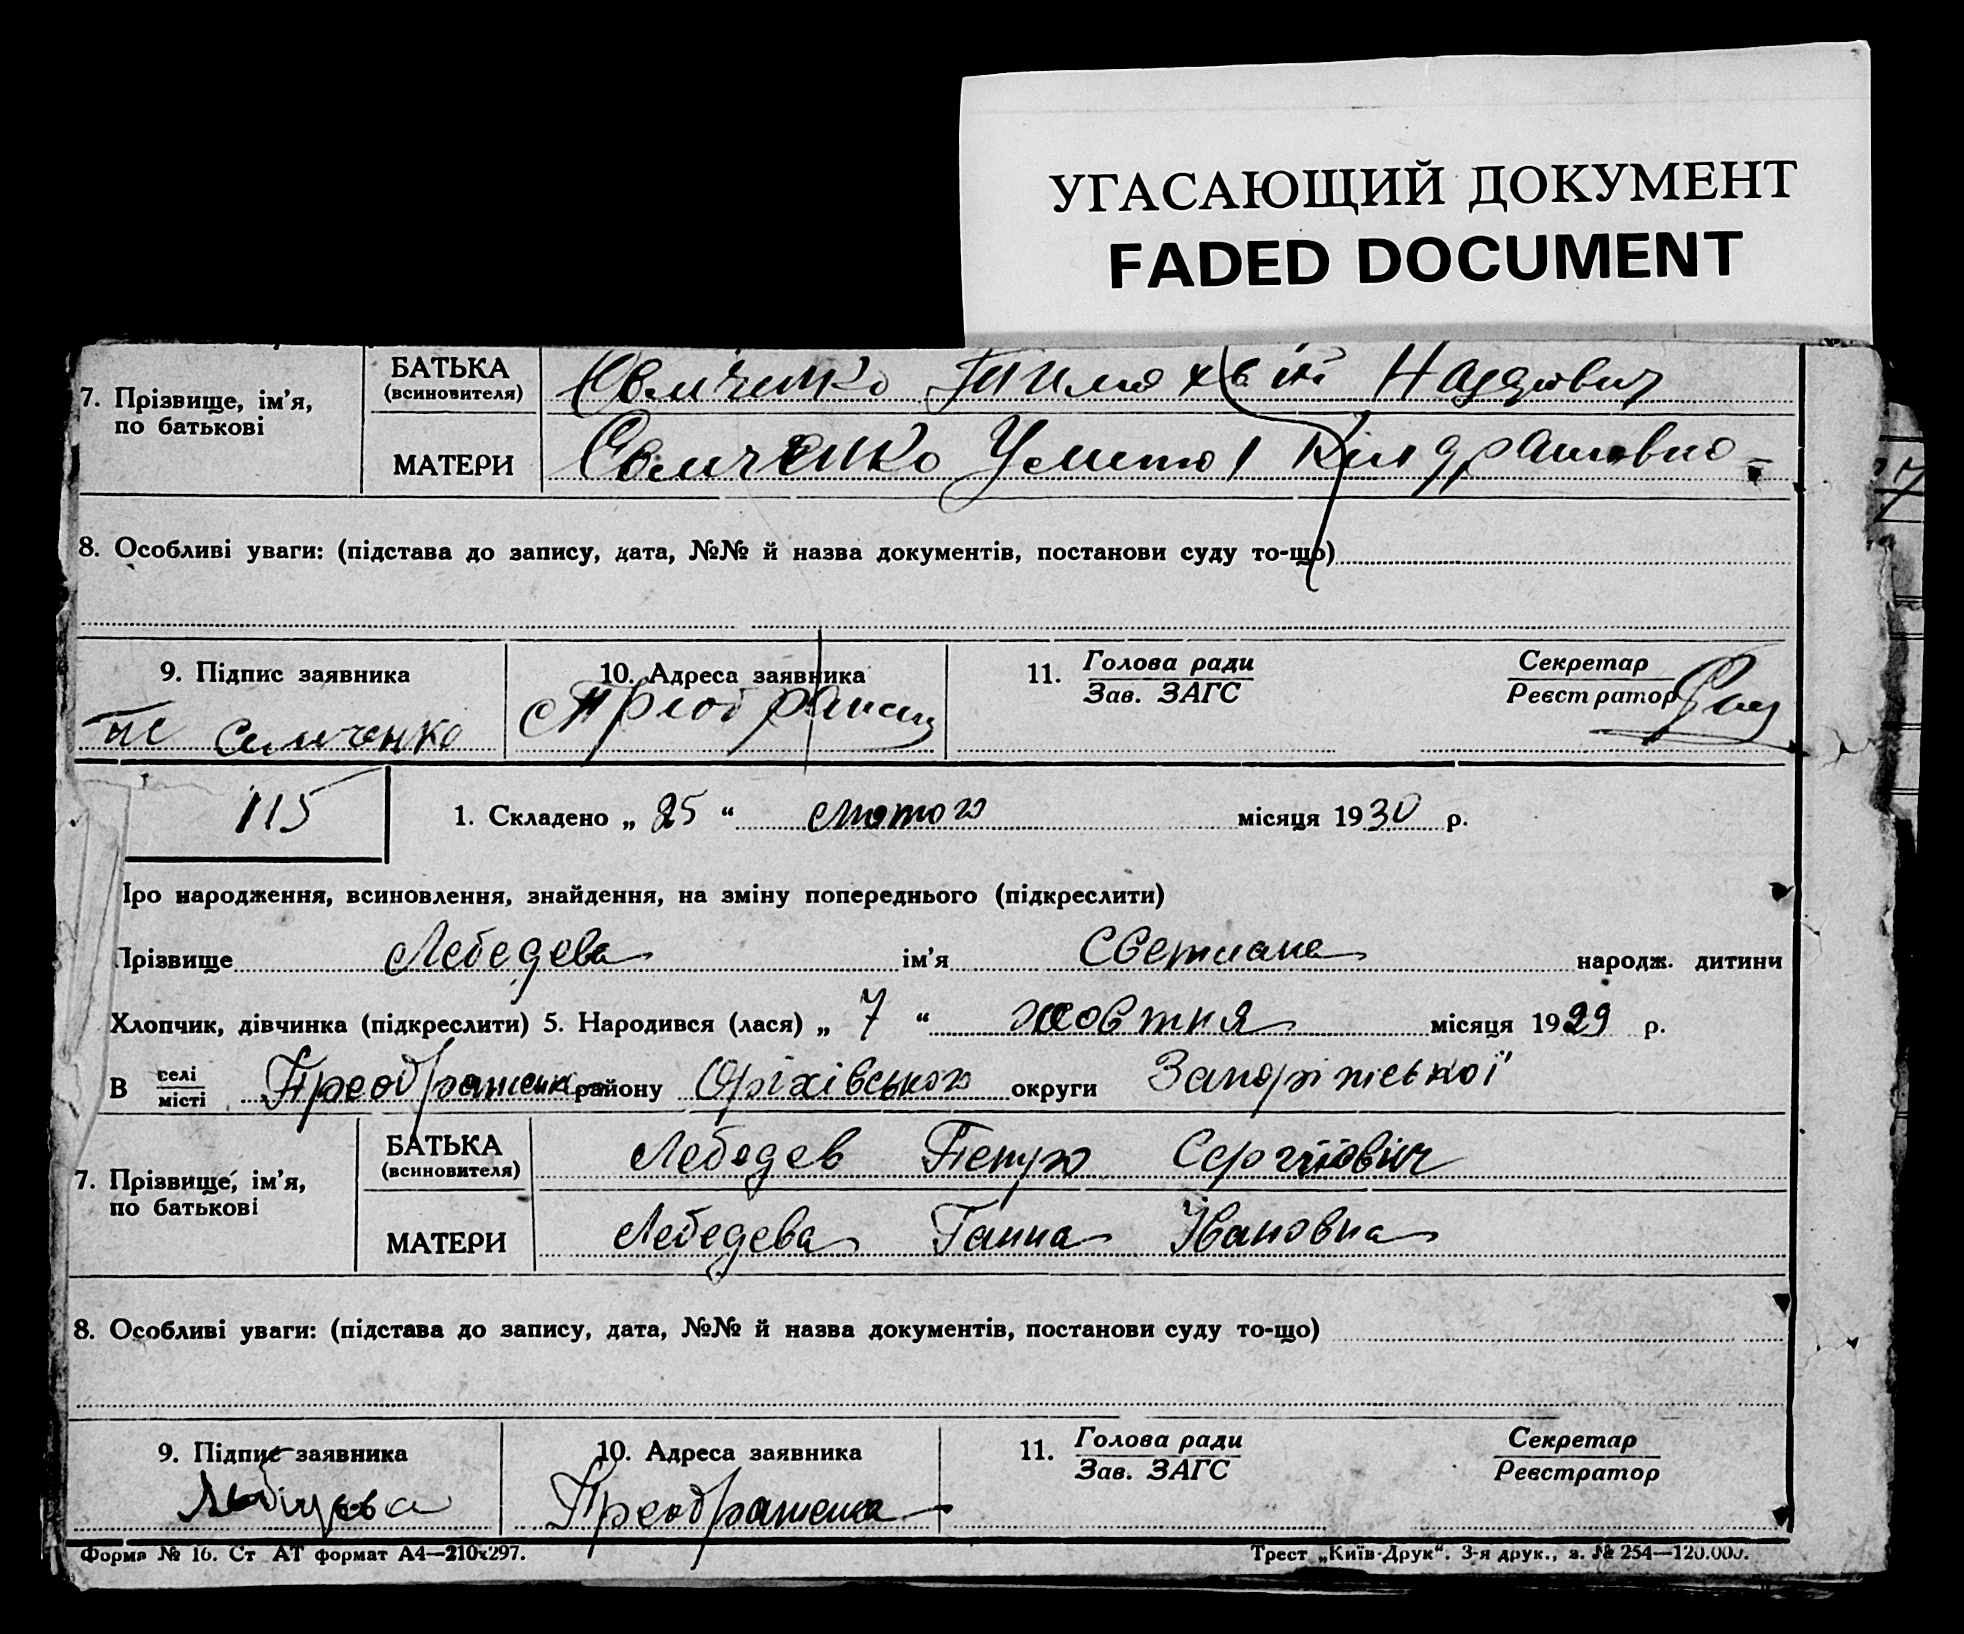 УГАСАЮЩИЙ ДОКУМЕНТ
FADED DOCUMENT
7. Прізвище, ім'я, по батькові
БАТЬКА (всиновителя)
МАТЕРИ Кіндратовно
8. Особливі уваги: (підстава до запису, дата, №№ й назва документів, постанови суду то-що)
9. Підпис заявника
10. Адреса заявника
11. Голова ради Зав. ЗАГС
Секретар Реєстратор
115
1. Складено „ 25 “ лютого місяця 1930 р.
Про народження, всиновлення, знайдення, на зміну попереднього (підкреслити)
Прізвище Лебедева ім'я Светлана народж. дитини
Хлопчик, дівчинка (підкреслити) 5. Народився (лася) „ 7 “ жовтня місяця 1929 р.
В селі місті Преображенка району Оріхівського округи Запоріжської
7. Прізвище, ім'я, по батькові
БАТЬКА (всиновителя) Лебедев Петро Сергійович
МАТЕРИ Лебедева Ганна Івановна
8. Особливі уваги: (підстава до запису, дата, №№ й назва документів, постанови суду то-що)
9. Підпис заявника
10. Адреса заявника
11. Голова ради Зав. ЗАГС
Секретар Реєстратор
Преображенка
Форма № 16. Ст АТ формат А4—210х297.
Трест „Київ-Друк“. 3-я друк., з. № 254—120.000.